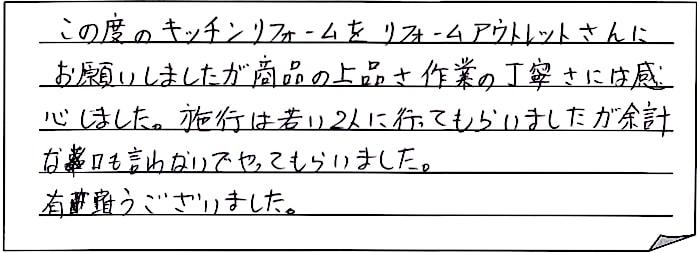 この度のキッチンリフォームを リフォームアウトレットさんに
お願いしましたが商品の上品さ作業の丁寧さには感
心しました。施行は若い2人に行ってもらいましたが余計
な口も言わないでやってもらいました。
有難うございました。